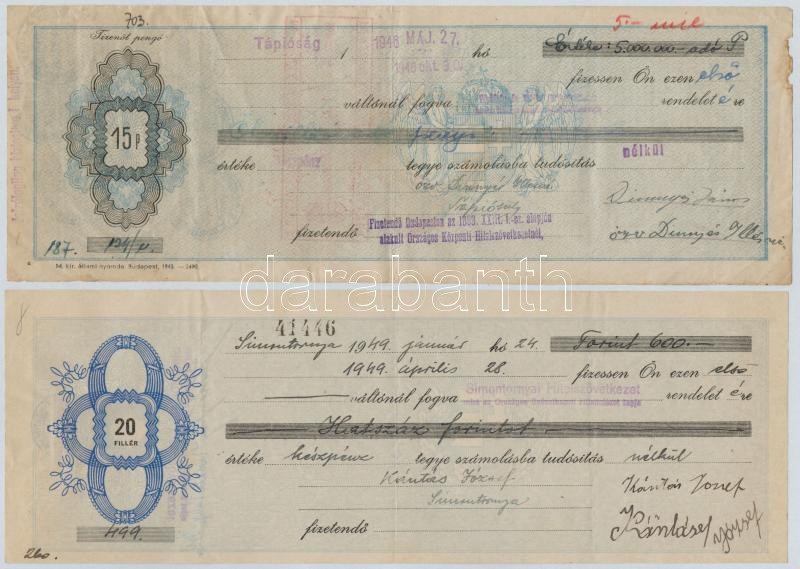 703.
5.- mill
Tizenöt pengő
Tápióság 1 1946 MÁJ. 27. hó
Érték: 5.000.000.- adó P
1946 okt. 30.
fizessen Ön ezen első
váltónál fogva
rendelet é re
15 P
értéke tegye számolásba tudósítás nélkül
özv
Dinnyés János
özv Dinnyés Illésné
Fizetendő Budapesten az
alakult Országos Központi Hitelszövetkezetnél,
fizetendő
187.
M. kir. állami nyomda. Budapest, 1945. — 2490.
darabanth
8
41446
Simontornya 1949. január hó 24. Forint 600.—
1949. április 28. fizessen Ön ezen első
Simontornyai Hitelszövetkezet
váltónál fogva rendelet é re
20
FILLÉR
Hatszáz forintot
értéke készpénz tegye számolásba tudósítás nélkül
Kántás József
Simontornya
Kántás József
fizetendő
Kántás József
499.
260.